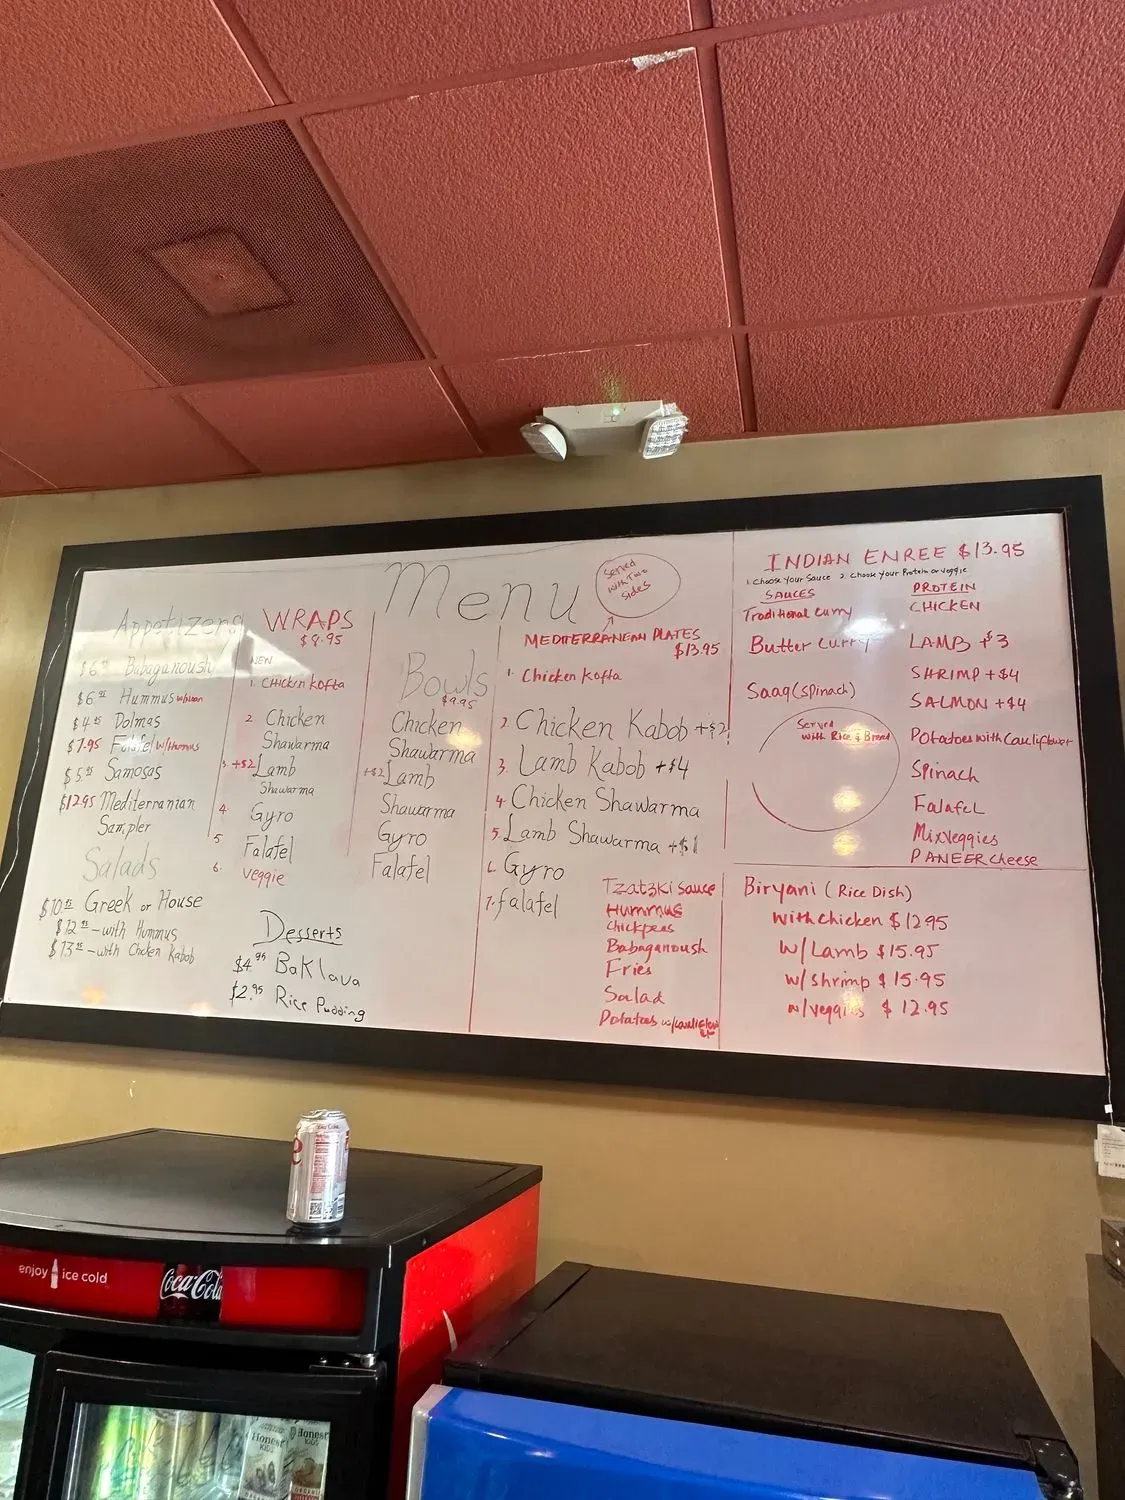 Menu
Served
with Two
Sides
Appetizers
Babaganoush
$6.95 Hummus w/Naan
Dolmas
$7.95 Falafel w/Hummus
Samosas
$12.95 Mediterranian
Sampler
Salads
Greek or House
– with Hummus
– with Chicken Kabob
WRAPS
$8.95
NEW
1. Chicken Kofta
2 Chicken
Shawarma
3. +$2 Lamb
Shawarma
4. Gyro
5 Falafel
6. Veggie
Desserts
$4.95 Baklava
$2.95 Rice Pudding
Bowls
$9.95
Chicken
Shawarma
+$2 Lamb
Shawarma
Gyro
Falafel
MEDITERRANEAN PLATES
$13.95
1. Chicken Kofta
2. Chicken Kabob +$2
3. Lamb Kabob +$4
4 Chicken Shawarma
5. Lamb Shawarma +$1
6. Gyro
7. falafel
Tzatzki Sauce
Hummus
Chickpeas
Babaganoush
Fries
Salad
Potatoes
INDIAN ENREE $13.95
1. Choose Your Sauce 2. Choose Your Protein or veggie
SAUCES
Traditional Curry
Butter Curry
Saag (Spinach)
Served
with Rice & Bread
PROTEIN
CHICKEN
LAMB +$3
SHRIMP +$4
SALMON +$4
Potatoes with Cauliflower
Spinach
Falafel
Mix Veggies
PANEER Cheese
Biryani (Rice Dish)
With Chicken $12.95
W/Lamb $15.95
w/shrimp $15.95
w/veggies $12.95
enjoy ice cold
Coca-Cola
Honest
KIDS
Honest
KIDS